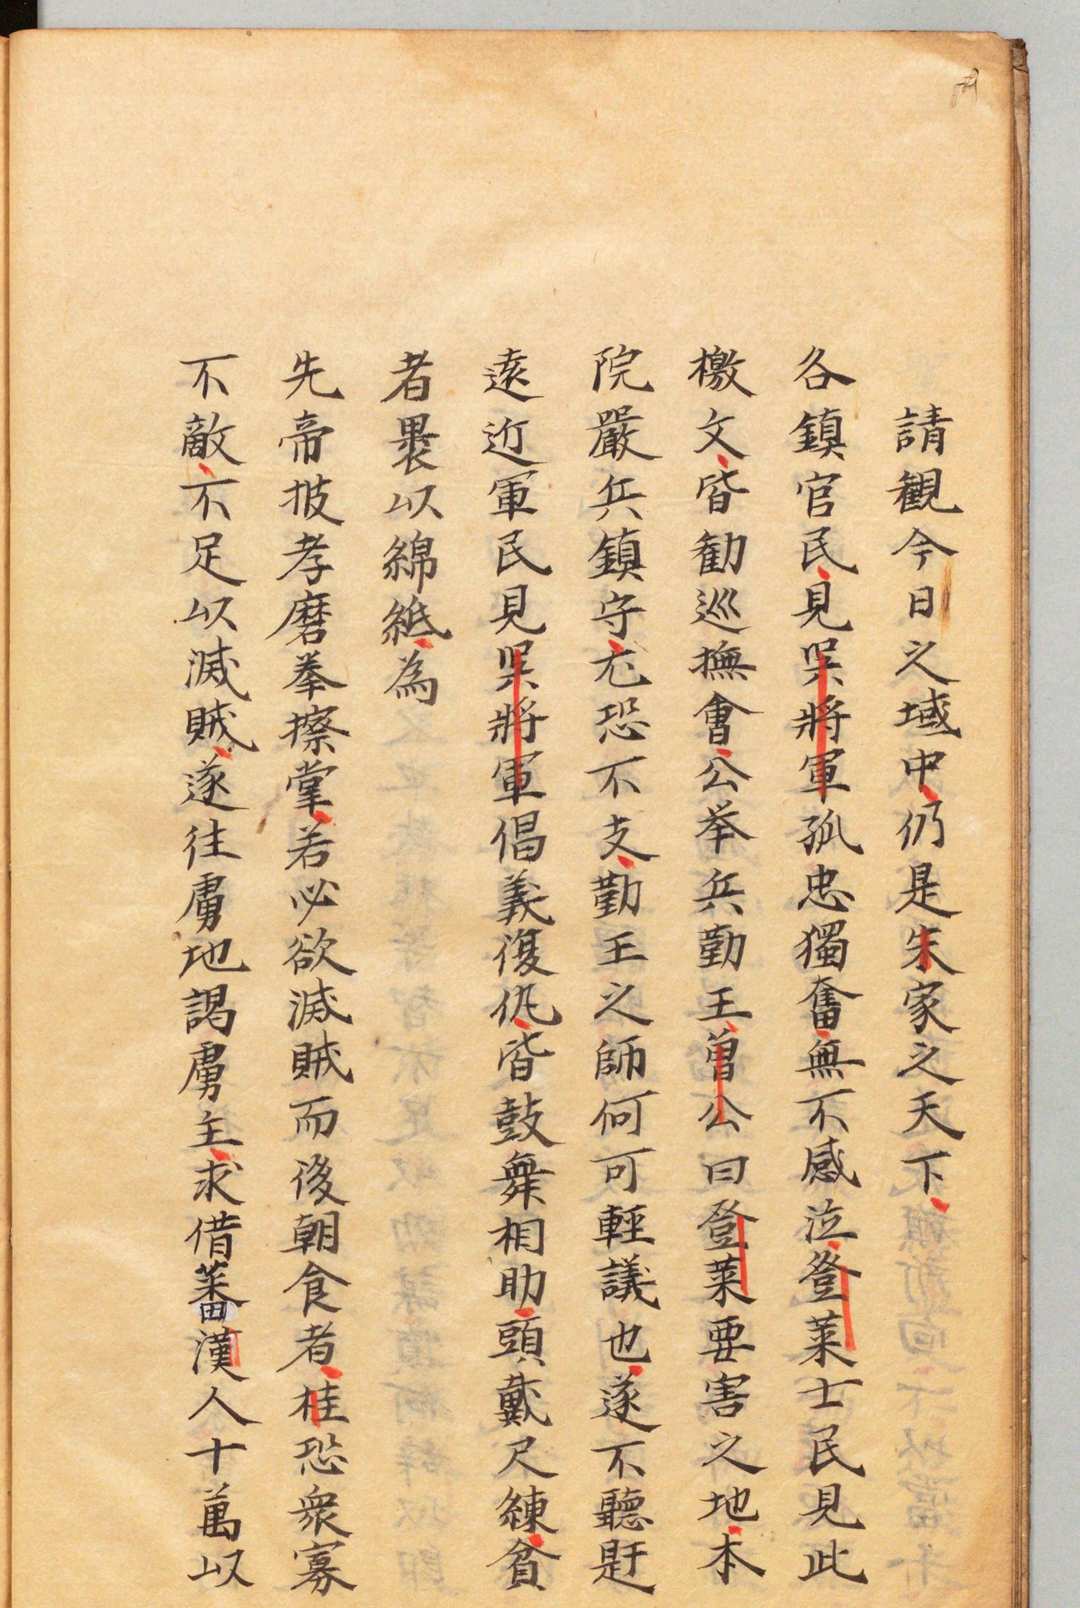 請観今日之域中仍是朱家之天下
各鎮官民見吳將軍孤忠獨奮無不感泣登莱士民見此
檄文皆勧巡撫會公挙兵勤王曽公曰登莱要害之地本
院嚴兵鎮守尤恐不支勤王之師何可輕議也遂不聽
遠近軍民見吳將軍倡義復仇皆鼓舞相助頭戴尺練貧
者裹以綿紙為
先帝披孝磨拳擦掌若必欲滅賊而後朝食者桂恐衆寡
不敵不足以滅賊遂往虜地謁虜主求借蕃漢人十萬以